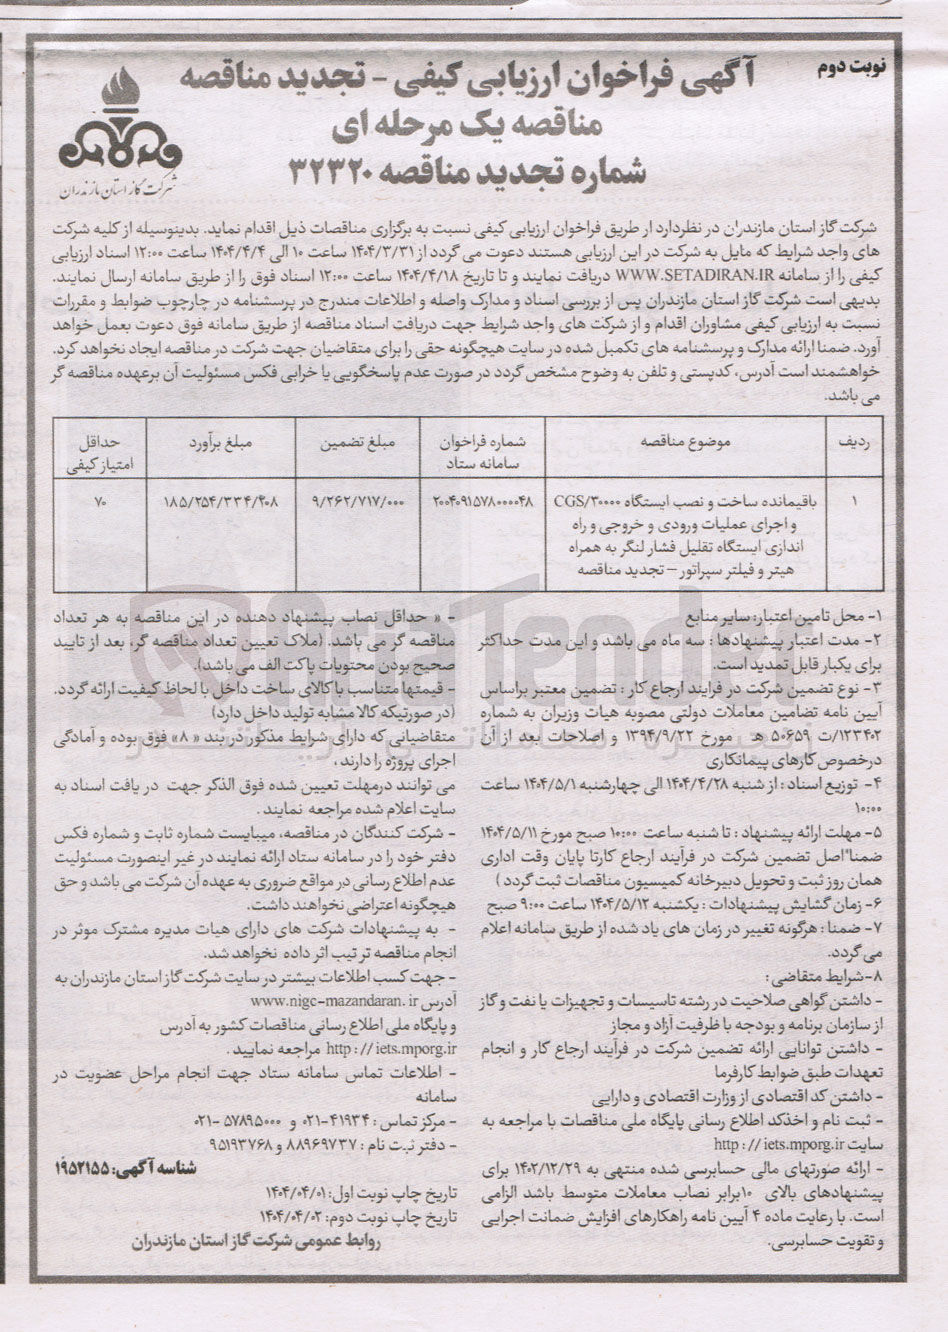 نوبت دوم
آگهی فراخوان ارزیابی کیفی - تجدید مناقصه
مناقصه یک مرحله ای
شماره تجدید مناقصه ۳۲۳۲۰
شرکت گاز استان مازندران
شرکت گاز استان مازندران در نظردارد از طریق فراخوان ارزیابی کیفی نسبت به برگزاری مناقصات ذیل اقدام نماید. بدینوسیله از کلیه شرکت
های واجد شرایط که مایل به شرکت در این ارزیابی هستند دعوت می گردد از ۱۴۰۴/۳/۳۱ ساعت ۱۰ الی ۱۴۰۴/۴/۴ ساعت ۱۲:۰۰ اسناد ارزیابی
کیفی را از سامانه WWW.SETADIRAN.IR دریافت نمایند و تا تاریخ ۱۴۰۴/۴/۱۸ ساعت ۱۲:۰۰ اسناد فوق را از طریق سامانه ارسال نمایند.
بدیهی است شرکت گاز استان مازندران پس از بررسی اسناد و مدارک واصله و اطلاعات مندرج در پرسشنامه در چارچوب ضوابط و مقررات
نسبت به ارزیابی کیفی مشاوران اقدام و از شرکت های واجد شرایط جهت دریافت اسناد مناقصه از طریق سامانه فوق دعوت بعمل خواهد
آورد. ضمنا ارائه مدارک و پرسشنامه های تکمیل شده در سایت هیچگونه حقی را برای متقاضیان جهت شرکت در مناقصه ایجاد نخواهد کرد.
خواهشمند است آدرس، کدپستی و تلفن به وضوح مشخص گردد در صورت عدم پاسخگویی یا خرابی فکس مسئولیت آن برعهده مناقصه گر
می باشد.
ردیف | موضوع مناقصه | شماره فراخوان سامانه ستاد | مبلغ تضمین | مبلغ برآورد | حداقل امتیاز کیفی
۱ | باقیمانده ساخت و نصب ایستگاه CGS/۳۰۰۰۰ | ۲۰۰۴۰۹۱۵۷۸۰۰۰۰۴۸ | ۹/۲۶۲/۷۱۷/۰۰۰ | ۱۸۵/۲۵۴/۳۳۴/۴۰۸ | ۷۰
و اجرای عملیات ورودی و خروجی و راه
اندازی ایستگاه تقلیل فشار لنگر به همراه
هیتر و فیلتر سپراتور – تجدید مناقصه
۱- محل تامین اعتبار: سایر منابع
۲- مدت اعتبار پیشنهادها : سه ماه می باشد و این مدت حداکثر
برای یکبار قابل تمدید است.
۳- نوع تضمین شرکت در فرایند ارجاع کار : تضمین معتبر براساس
آیین نامه تضامین معاملات دولتی مصوبه هیات وزیران به شماره
۱۲۳۴۰۲/ت ۵۰۶۵۹ هـ مورخ ۱۳۹۴/۹/۲۲ و اصلاحات بعد از آن
درخصوص کارهای پیمانکاری
۴- توزیع اسناد : از شنبه ۱۴۰۴/۴/۲۸ الی چهارشنبه ۱۴۰۴/۵/۱ ساعت
۱۰:۰۰
۵- مهلت ارائه پیشنهاد : تا شنبه ساعت ۱۰:۰۰ صبح مورخ ۱۴۰۴/۵/۱۱
ضمنا"اصل تضمین شرکت در فرآیند ارجاع کارتا پایان وقت اداری
همان روز ثبت و تحویل دبیرخانه کمیسیون مناقصات ثبت گردد )
۶- زمان گشایش پیشنهادات : یکشنبه ۱۴۰۴/۵/۱۲ ساعت ۹:۰۰ صبح
۷- ضمنا : هرگونه تغییر در زمان های یاد شده از طریق سامانه اعلام
می گردد.
۸-شرایط متقاضی :
- داشتن گواهی صلاحیت در رشته تاسیسات و تجهیزات یا نفت و گاز
از سازمان برنامه و بودجه با ظرفیت آزاد و مجاز
- داشتن توانایی ارائه تضمین شرکت در فرآیند ارجاع کار و انجام
تعهدات طبق ضوابط کارفرما
- داشتن کد اقتصادی از وزارت اقتصادی و دارایی
- ثبت نام و اخذکد اطلاع رسانی پایگاه ملی مناقصات با مراجعه به
سایت http://iets.mporg.ir
- ارائه صورتهای مالی حسابرسی شده منتهی به ۱۴۰۲/۱۲/۲۹ برای
پیشنهادهای بالای ۱۰برابر نصاب معاملات متوسط باشد الزامی
است. با رعایت ماده ۴ آیین نامه راهکارهای افزایش ضمانت اجرایی
و تقویت حسابرسی.
- « حداقل نصاب پیشنهاد دهنده در این مناقصه به هر تعداد
مناقصه گر می باشد. (ملاک تعیین تعداد مناقصه گر، بعد از تایید
صحیح بودن محتویات پاکت الف می باشد).
- قیمتها متناسب با کالای ساخت داخل با لحاظ کیفیت ارائه گردد.
(در صورتیکه کالا مشابه تولید داخل دارد)
متقاضیانی که دارای شرایط مذکور در بند « ۸» فوق بوده و آمادگی
اجرای پروژه را دارند ،
می توانند درمهلت تعیین شده فوق الذکر جهت در یافت اسناد به
سایت اعلام شده مراجعه نمایند .
- شرکت کنندگان در مناقصه، میبایست شماره ثابت و شماره فکس
دفتر خود را در سامانه ستاد ارائه نمایند در غیر اینصورت مسئولیت
عدم اطلاع رسانی در مواقع ضروری به عهده آن شرکت می باشد و حق
هیچگونه اعتراضی نخواهند داشت.
- به پیشنهادات شرکت های دارای هیات مدیره مشترک موثر در
انجام مناقصه ترتیب اثر داده نخواهد شد.
- جهت کسب اطلاعات بیشتر در سایت شرکت گاز استان مازندران به
آدرس www.nigc-mazandaran.ir
و پایگاه ملی اطلاع رسانی مناقصات کشور به آدرس
http://iets.mporg.ir مراجعه نمایید .
- اطلاعات تماس سامانه ستاد جهت انجام مراحل عضویت در
سامانه
- مرکز تماس : ۴۱۹۳۴-۰۲۱ و ۵۷۸۹۵۰۰۰-۰۲۱
- دفتر ثبت نام : ۸۸۹۶۹۷۳۷ و ۹۵۱۹۳۷۶۸
شناسه آگهی: ۱۹۵۲۱۵۵
تاریخ چاپ نوبت اول: ۱۴۰۴/۰۴/۰۱
تاریخ چاپ نوبت دوم: ۱۴۰۴/۰۴/۰۲
روابط عمومی شرکت گاز استان مازندران